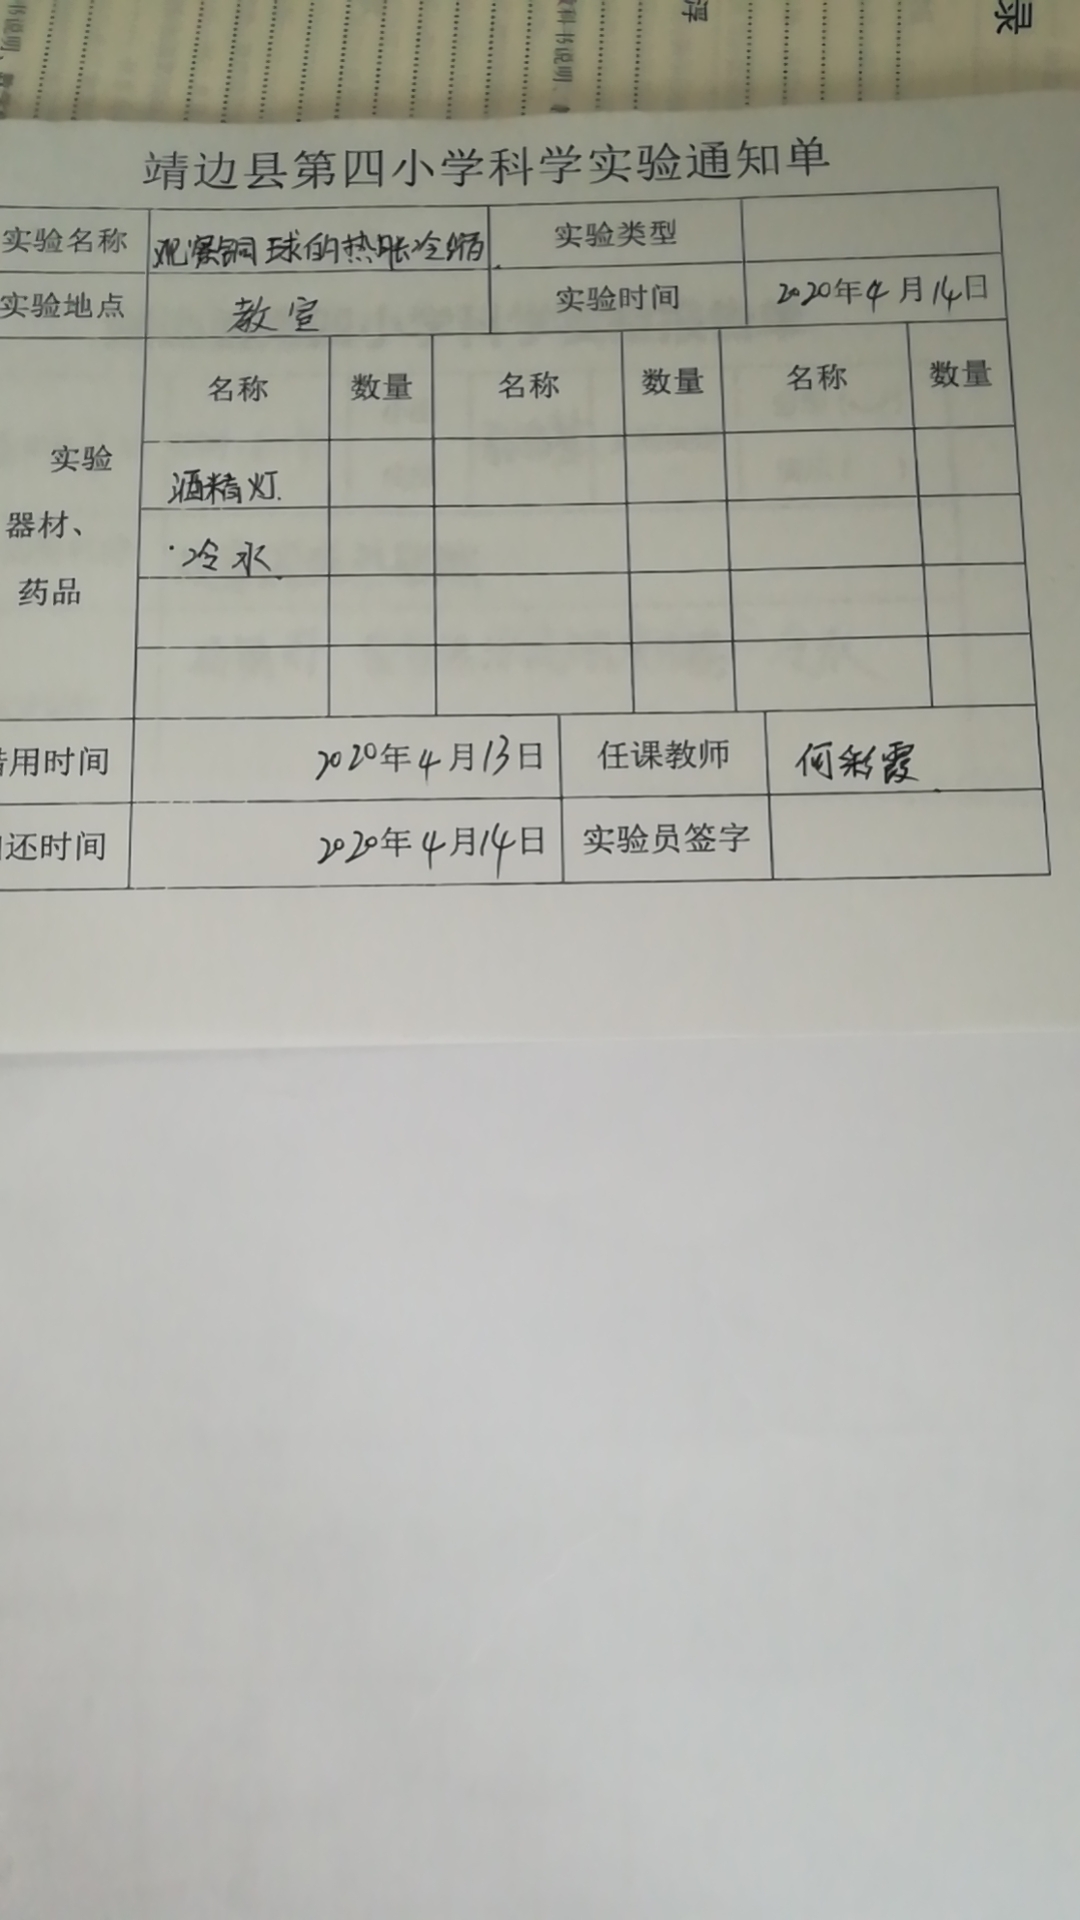 录
靖边县第四小学科学实验通知单
实验名称 观察铜球的热胀冷缩 实验类型
实验地点 教室 实验时间 2020年4月14日
实验器材、药品
名称 数量 名称 数量 名称 数量
酒精灯
冷水
用时间 2020年4月13日 任课教师 何彩霞
还时间 2020年4月14日 实验员签字